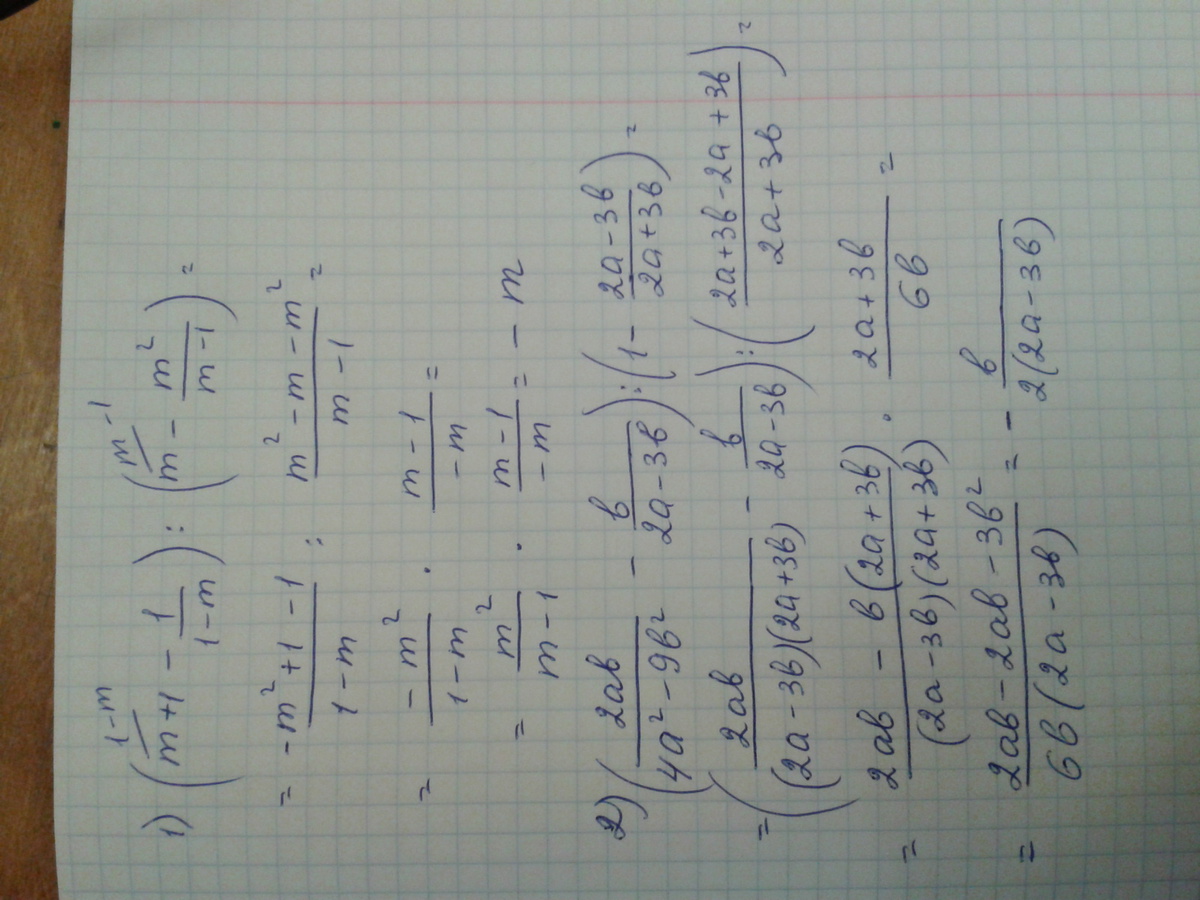 1) (m+1 (1-m) - 1/(1-m)) : (m (m-1) - m²/(m-1)) =
= (-m²+1-1)/(1-m) : (m²-m-m²)/(m-1) =
= (-m²)/(1-m) · (m-1)/(-m) =
= m²/(m-1) · (m-1)/(-m) = -m
2) (2ab/(4a²-9b²) - b/(2a-3b)) : (1 - (2a-3b)/(2a+3b)) =
= (2ab/((2a-3b)(2a+3b)) - b/(2a-3b)) : ((2a+3b-2a+3b)/(2a+3b)) =
= (2ab - b(2a+3b))/((2a-3b)(2a+3b)) · (2a+3b)/(6b) =
= (2ab-2ab-3b²)/(6b(2a-3b)) = - b/(2(2a-3b))